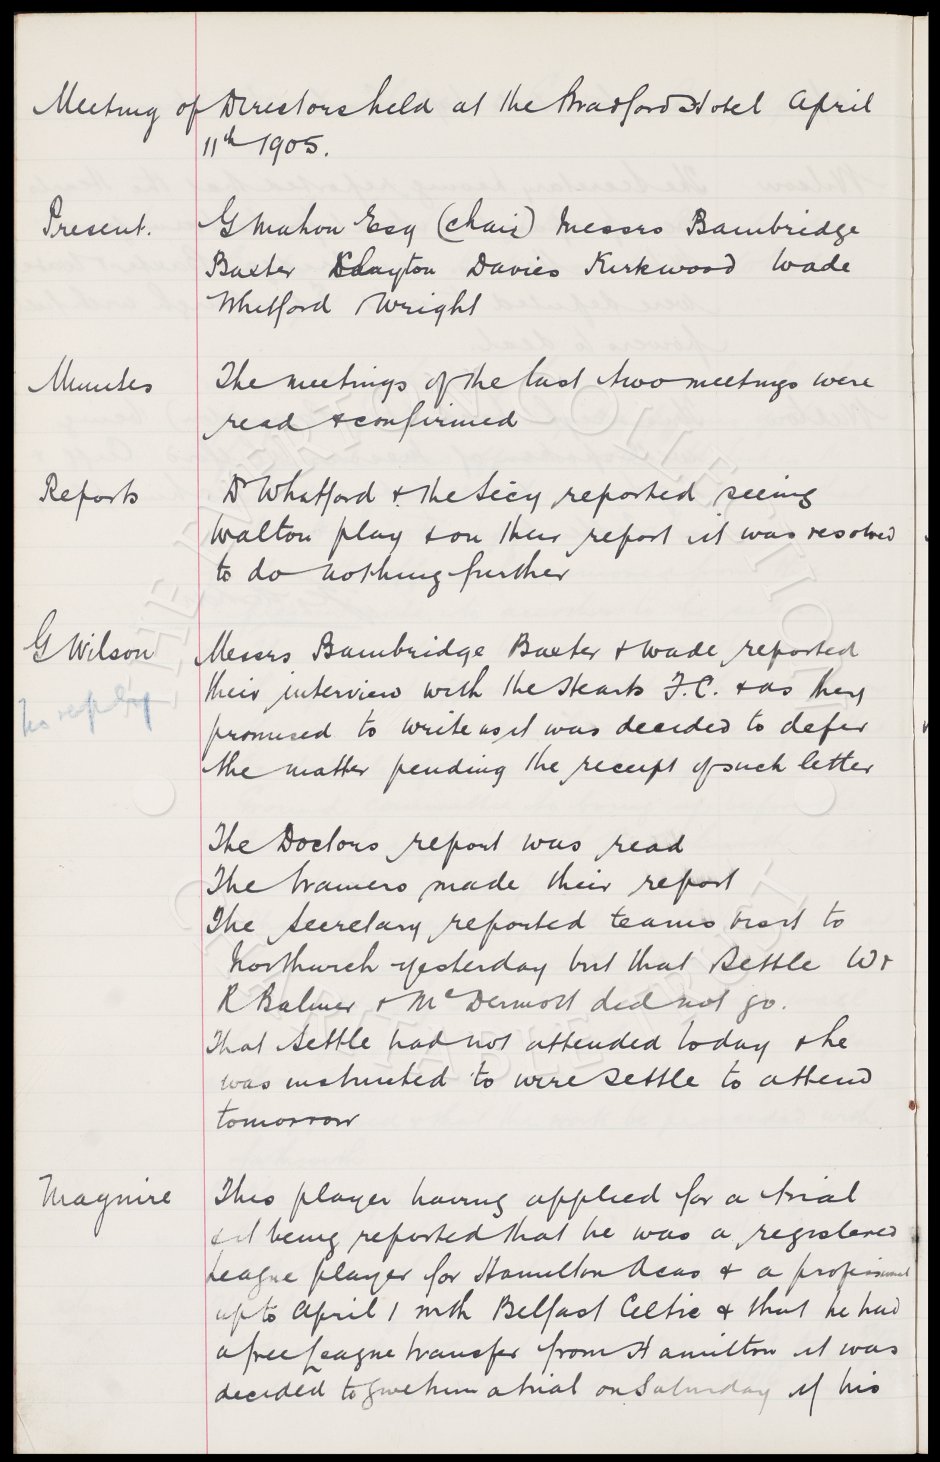 Meeting of Directors held at the Bradford Hotel April
11th 1905.
Present. G Mahon Esq (chair) Messrs Bambridge
Baxter Clayton Davies Kirkwood Wade
Whitford Wright
Minutes The meetings of the last two meetings were
read & confirmed
Reports Dr Whitford & the Secy reported seeing
Walton play & on their report it was resolved
to do nothing further
G Wilson Messrs Bambridge Baxter & Wade reported
their interview with the Hearts F.C. & as they
No reply
promised to write us it was decided to defer
the matter pending the receipt of such letter
The Doctors report was read
The trainers made their report
The Secretary reported teams visit to
Northwich yesterday but that Settle W &
R Balmer & McDermott did not go.
That Settle had not attended today & he
was instructed to wire Settle to attend
tomorrow
Maguire This player having applied for a trial
& it being reported that he was a registered
League player for Hamilton Acas & a professional
up to April 1 with Belfast Celtic & that he had
a free League transfer from Hamilton it was
decided to give him a trial on Saturday if his